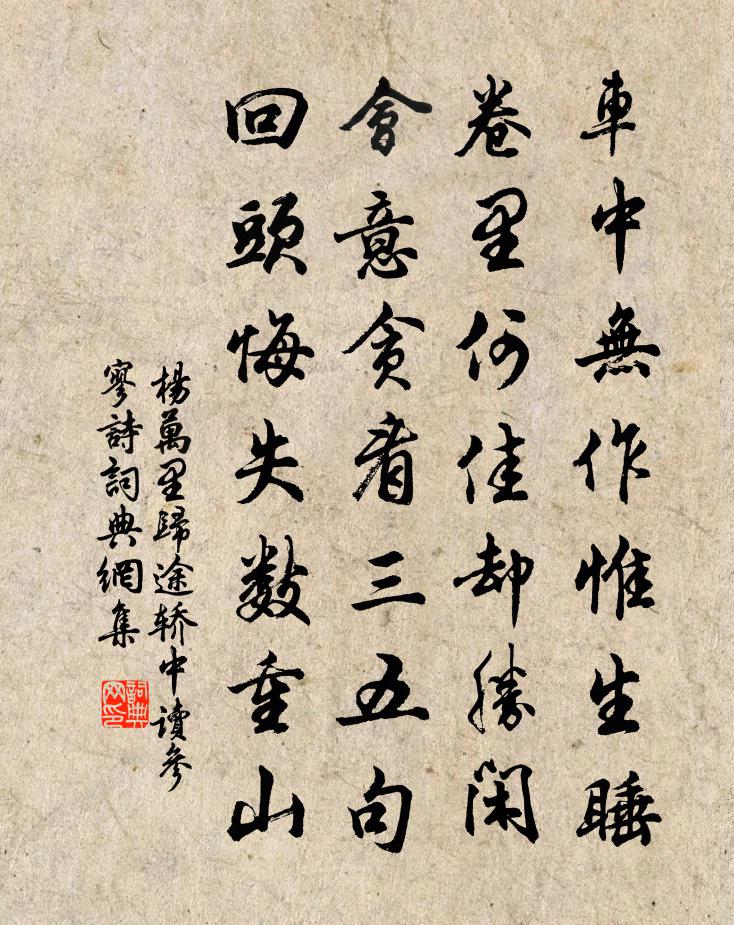 車中無作惟生睡
卷里何佳却勝閑
會意貪看三五句
回頭悔失數重山
楊萬里歸途轿中讀參
寥詩詞典網集
詞典
网印